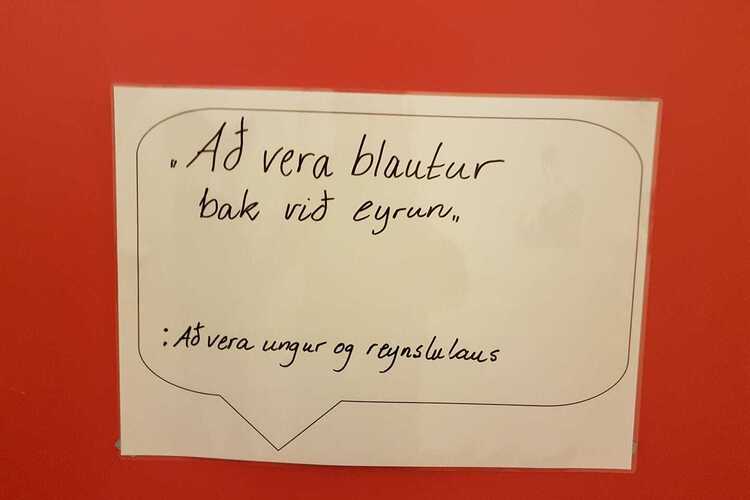 „Að vera blautur
bak við eyrun„
: Að vera ungur og reynslulaus